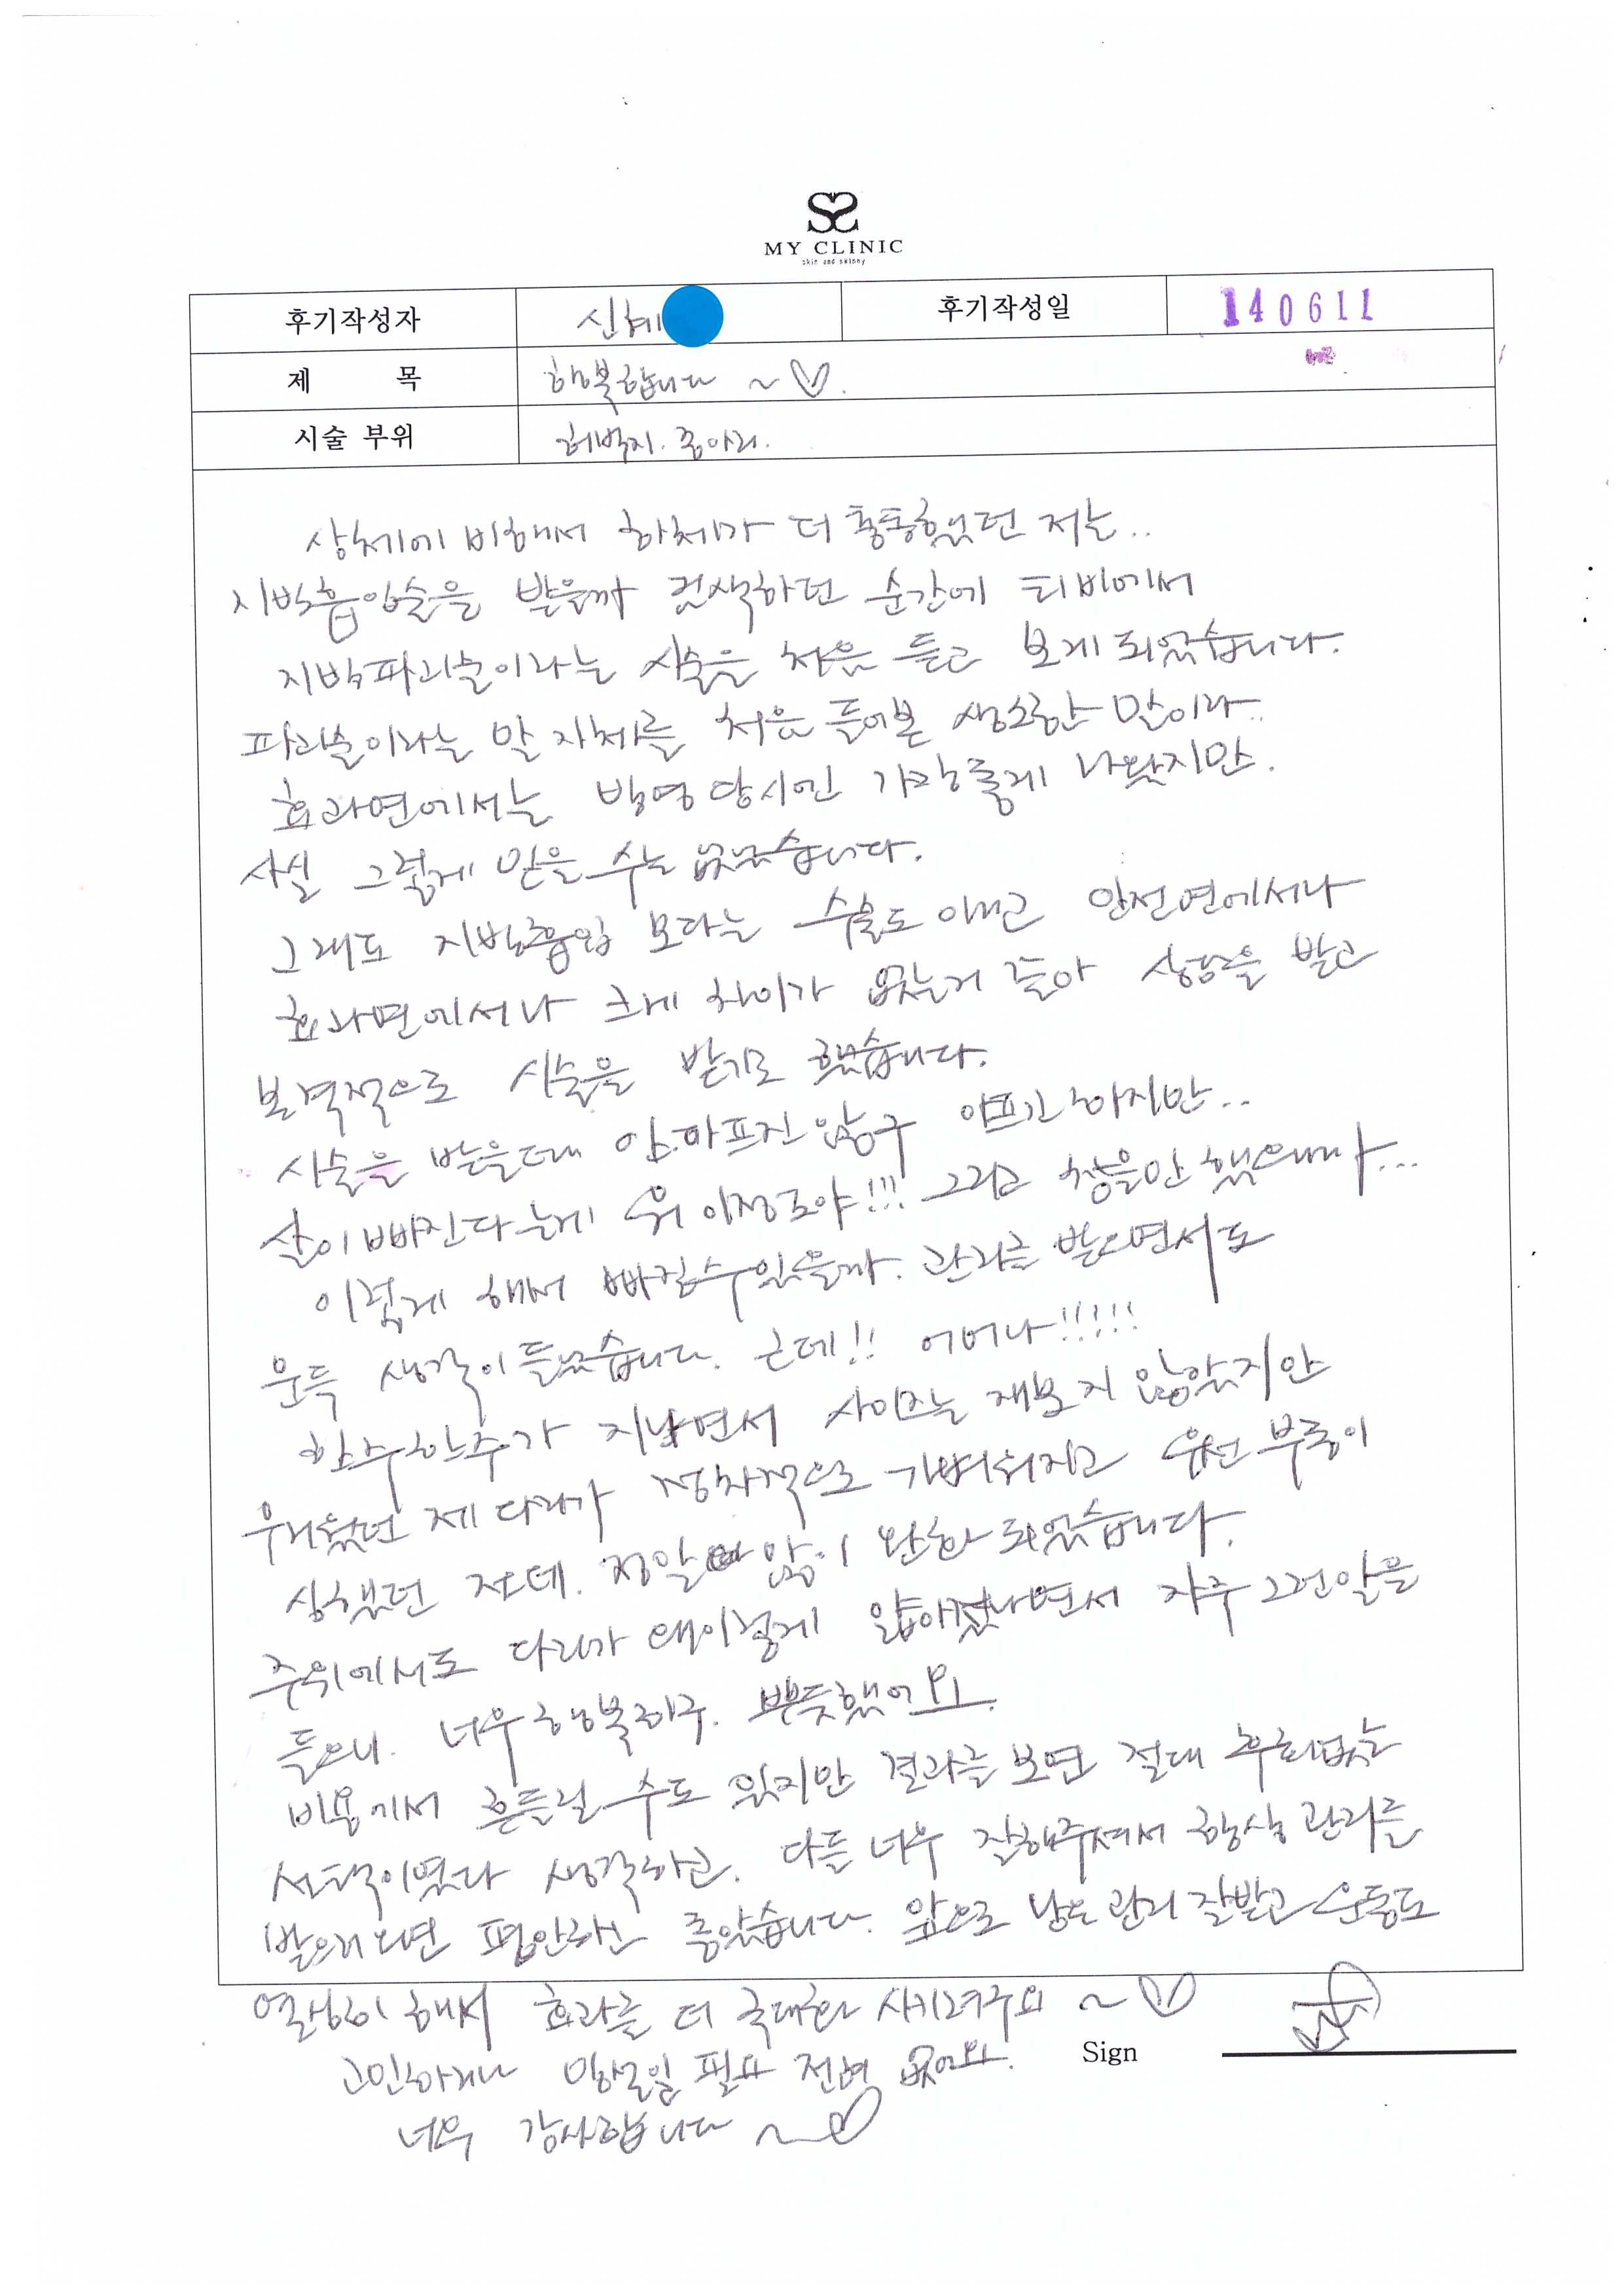 MY CLINIC
skin and skinny
후기작성자 신혜 후기작성일 140611
제 목 행복합니다 ~♡.
시술 부위 허벅지. 종아리.
상체에 비해서 하체가 더 통통했던 저는..
지방흡입술을 받을까 검색하던 순간에 티비에서
지방파괴술이라는 시술을 처음 듣고 보게 되었습니다.
파괴술이라는 말 자체를 처음 들어본 생소한 말이라..
효과면에서는 방영 당시엔 가장 좋게 나왔지만.
사실 그렇게 믿을 수는 없었습니다.
그래도 지방흡입 보다는 수술도 아니고 안전면에서나
효과면에서나 크게 차이가 없는거 같아 상담을 받고
본격적으로 시술을 받기로 했습니다.
시술을 받을때 안.아프진 않구 아프긴 하지만..
살이 빠진다는데 뭐 이정도야!!! 그리고 절을안 했으니까...
이렇게 해서 빠질수있을까. 관리를 받으면서도
문득 생각이 들었습니다. 근데!! 어머나!!!!!
한주한주가 지나면서 사이즈는 재보지 않았지만
무거웠던 제 다리가 점차적으로 가벼워지고 우선 부종이
심했던 전데. 정말 많이 완화 되었습니다.
주위에서도 다리가 왜이렇게 얇아졌냐면서 자주 그런말을
들으니. 너무 행복하구. 뿌듯했어요.
비용에서 흔들릴 수도 있지만 결과를 보면 절대 후회없는
선택이였다 생각하고. 다들 너무 잘해주셔서 항상 관리를
받으러오면 편안하고 좋았습니다. 앞으로 남은 관리 잘받고 운동도
열심히 해서 효과를 더 극대화 시키려구요 ~♡
Sign
고민하거나 망설일 필요 전혀 없어요.
너무 감사합니다 ~♡